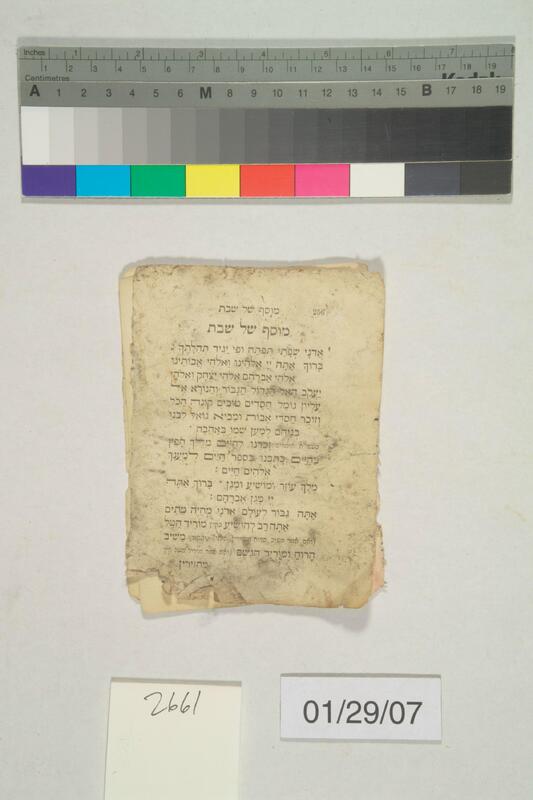 Inches 1 2 3 4 5 6 7
Centimetres 1 2 3 4 5 6 7 8 9 10 11 12 13 14 15 16 17 18 19
Kodak
A 1 2 3 4 5 6 M 8 9 10 11 12 13 14 15 B 17 18 19
מוסף של שבת
מוסף של שבת
אֲדֹנָי שְׂפָתַי תִּפְתָּח וּפִי יַגִּיד תְּהִלָּתֶךָ :
בָּרוּךְ אַתָּה יְיָ אֱלֹהֵינוּ וֵאלֹהֵי אֲבוֹתֵינוּ
אֱלֹהֵי אַבְרָהָם אֱלֹהֵי יִצְחָק וֵאלֹהֵי
יַעֲקֹב הָאֵל הַגָּדוֹל הַגִּבּוֹר וְהַנּוֹרָא אֵל
עֶלְיוֹן גּוֹמֵל חֲסָדִים טוֹבִים קוֹנֵה הַכֹּל
וְזוֹכֵר חַסְדֵי אָבוֹת וּמֵבִיא גוֹאֵל לִבְנֵי
בְנֵיהֶם לְמַעַן שְׁמוֹ בְּאַהֲבָה :
זָכְרֵנוּ לְחַיִּים מֶלֶךְ חָפֵץ
בַּחַיִּים כָּתְבֵנוּ בְּסֵפֶר חַיִּים לְמַעַנְךָ
אֱלֹהִים חַיִּים :
מֶלֶךְ עוֹזֵר וּמוֹשִׁיעַ וּמָגֵן : בָּרוּךְ אַתָּה
יְיָ מָגֵן אַבְרָהָם :
אַתָּה גִּבּוֹר לְעוֹלָם אֲדֹנָי מְחַיֵּה מֵתִים
אַתָּה רַב לְהוֹשִׁיעַ מוֹרִיד הַטַּל
מַשִּׁיב
הָרוּחַ וּמוֹרִיד הַגֶּשֶׁם
מחזירין
2661
01/29/07